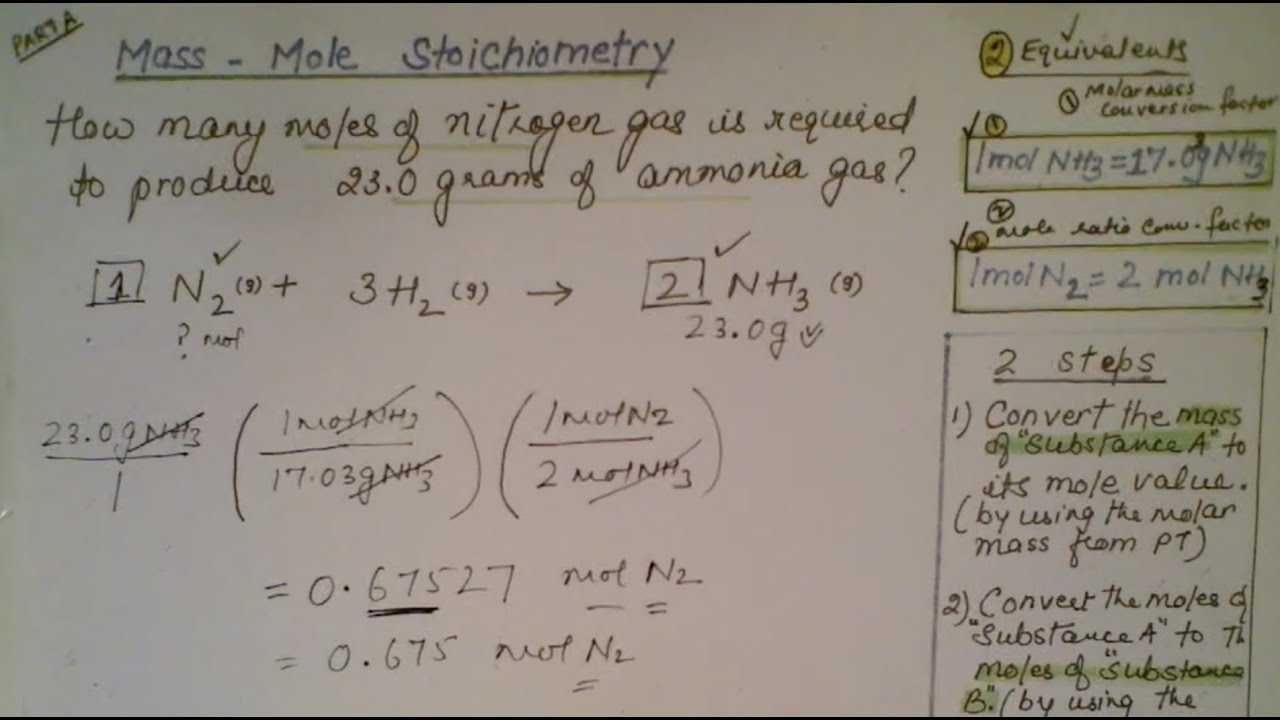 PART A
Mass - Mole Stoichiometry
How many moles of nitrogen gas is required
to produce 23.0 grams of ammonia gas?
1 N2(g) + 3H2(g) → 2 NH3(g)
? mol
23.0g
23.0gNH3 / 1 (1molNH3 / 17.03gNH3) (1molN2 / 2molNH3)
= 0.67527 mol N2
= 0.675 mol N2
2 Equivalents
① Molar mass
conversion factor
①
1mol NH3 = 17.03g NH3
② mole ratio conv. factor
②
1mol N2 = 2 mol NH3
2 steps
1) Convert the mass
of "Substance A" to
its mole value.
(by using the molar
mass from PT)
2) Convert the moles of
"Substance A" to Th
moles of "Substance
B." (by using the